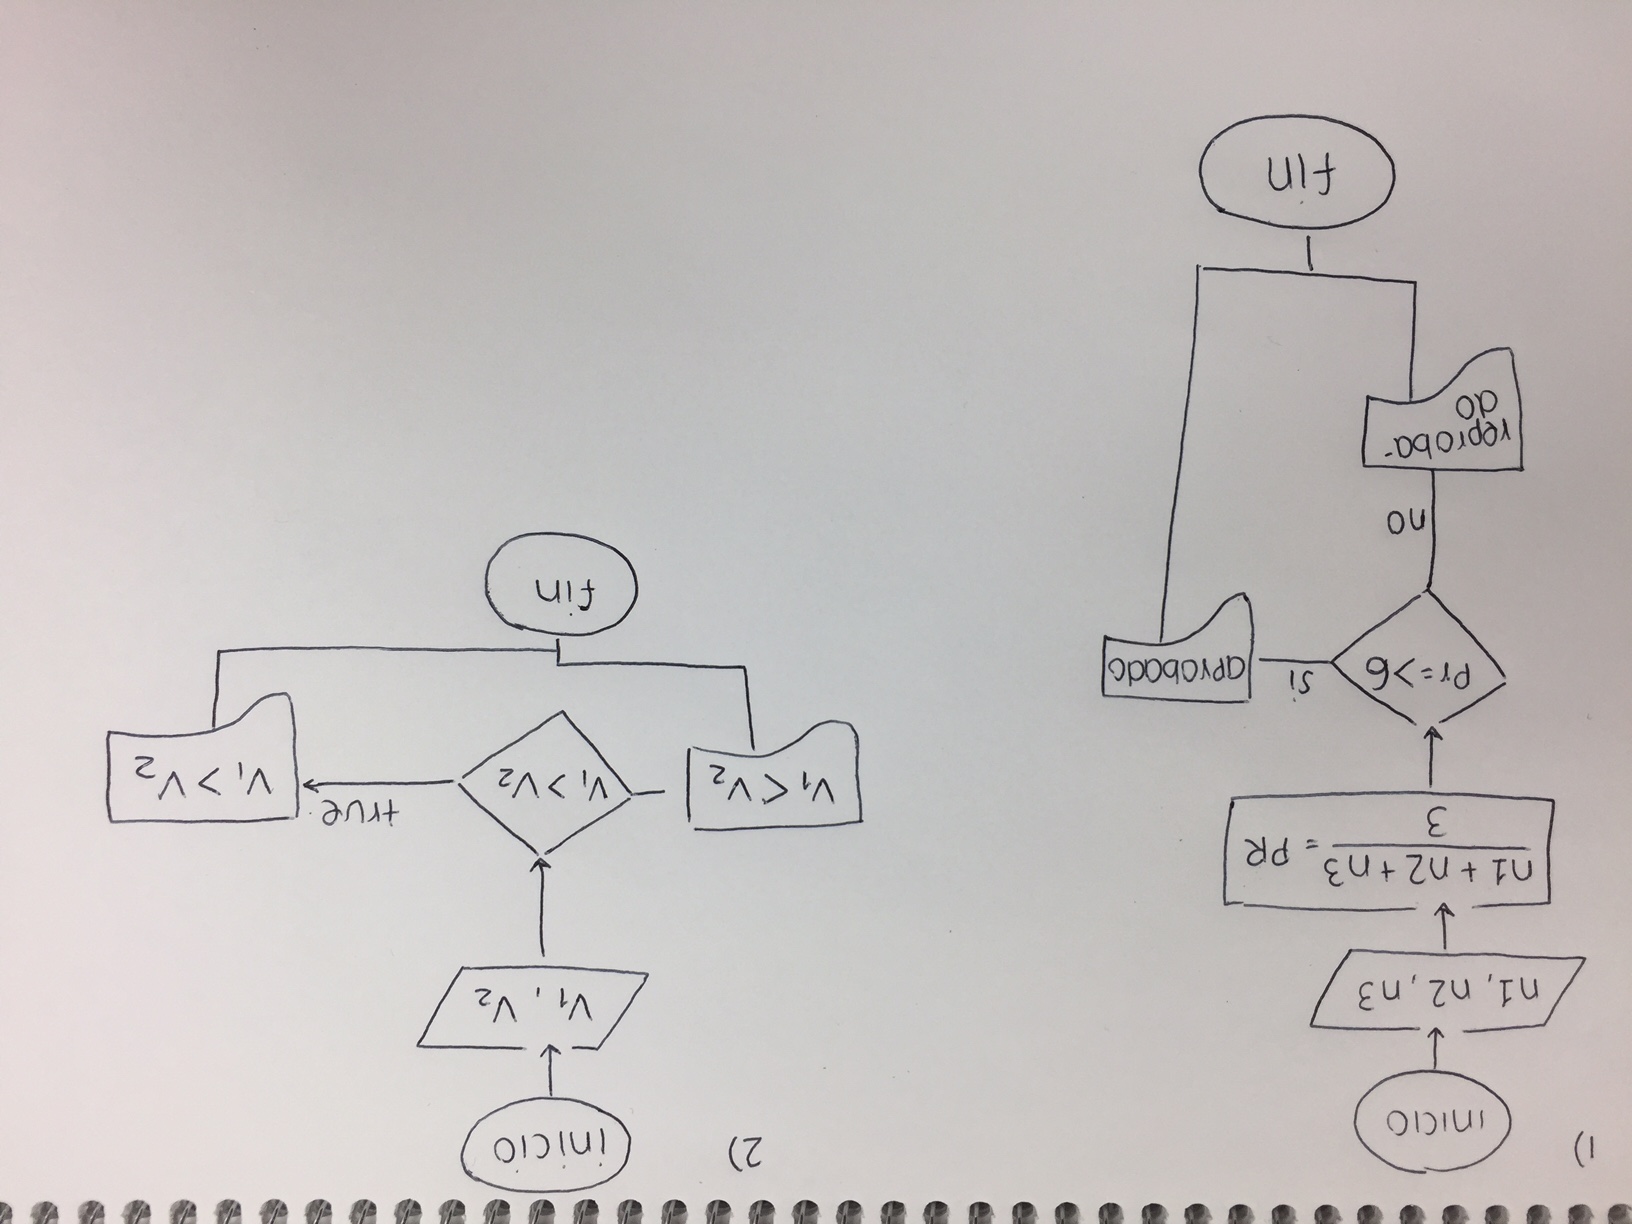 1)
inicio
n1, n2, n3
n1 + n2 + n3
3
= PR
Pr=>6
si
aprobado
no
reproba-
do
fin
2)
inicio
V1, V2
V1 > V2
true
V1 > V2
V1 < V2
fin